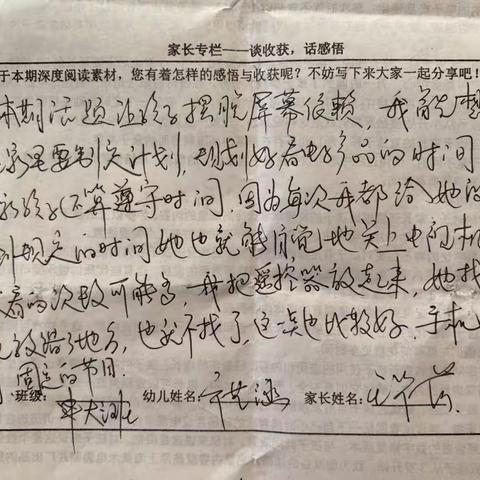 家长专栏——谈收获，话感悟
于本期深度阅读素材，您有着怎样的感悟与收获呢？不妨写下来大家一起分享吧！
本期话题让孩子摆脱屏幕依赖，我能想
家里要制定计划，规划好看电子产品的时间
孩子还算遵守时间，因为每次再都给她
到规定的时间她也就能自觉地关上电视机
看的次数可能多，我把遥控器放起来，她找
放哪个地方，也就不找了，这一点也比较好，手机
固定的节目．
班级： 幼儿姓名： 家长姓名：